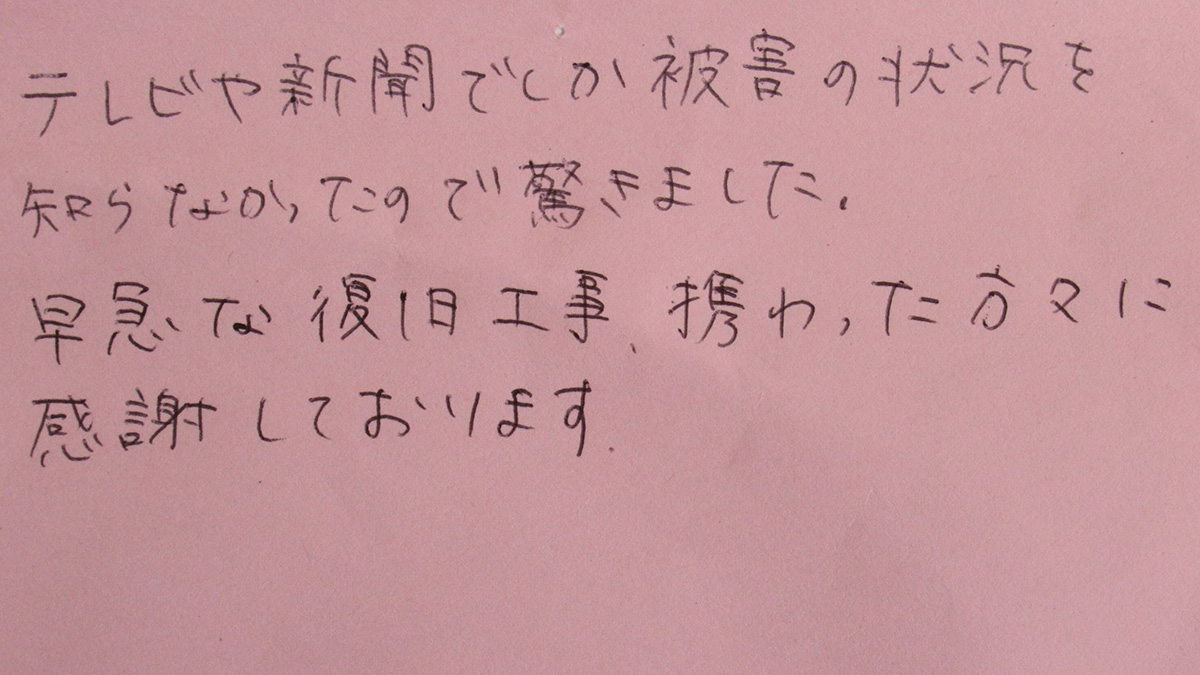 テレビや新聞でしか被害の状況を
知らなかったので驚きました.
早急な復旧工事、携わった方々に
感謝しております.